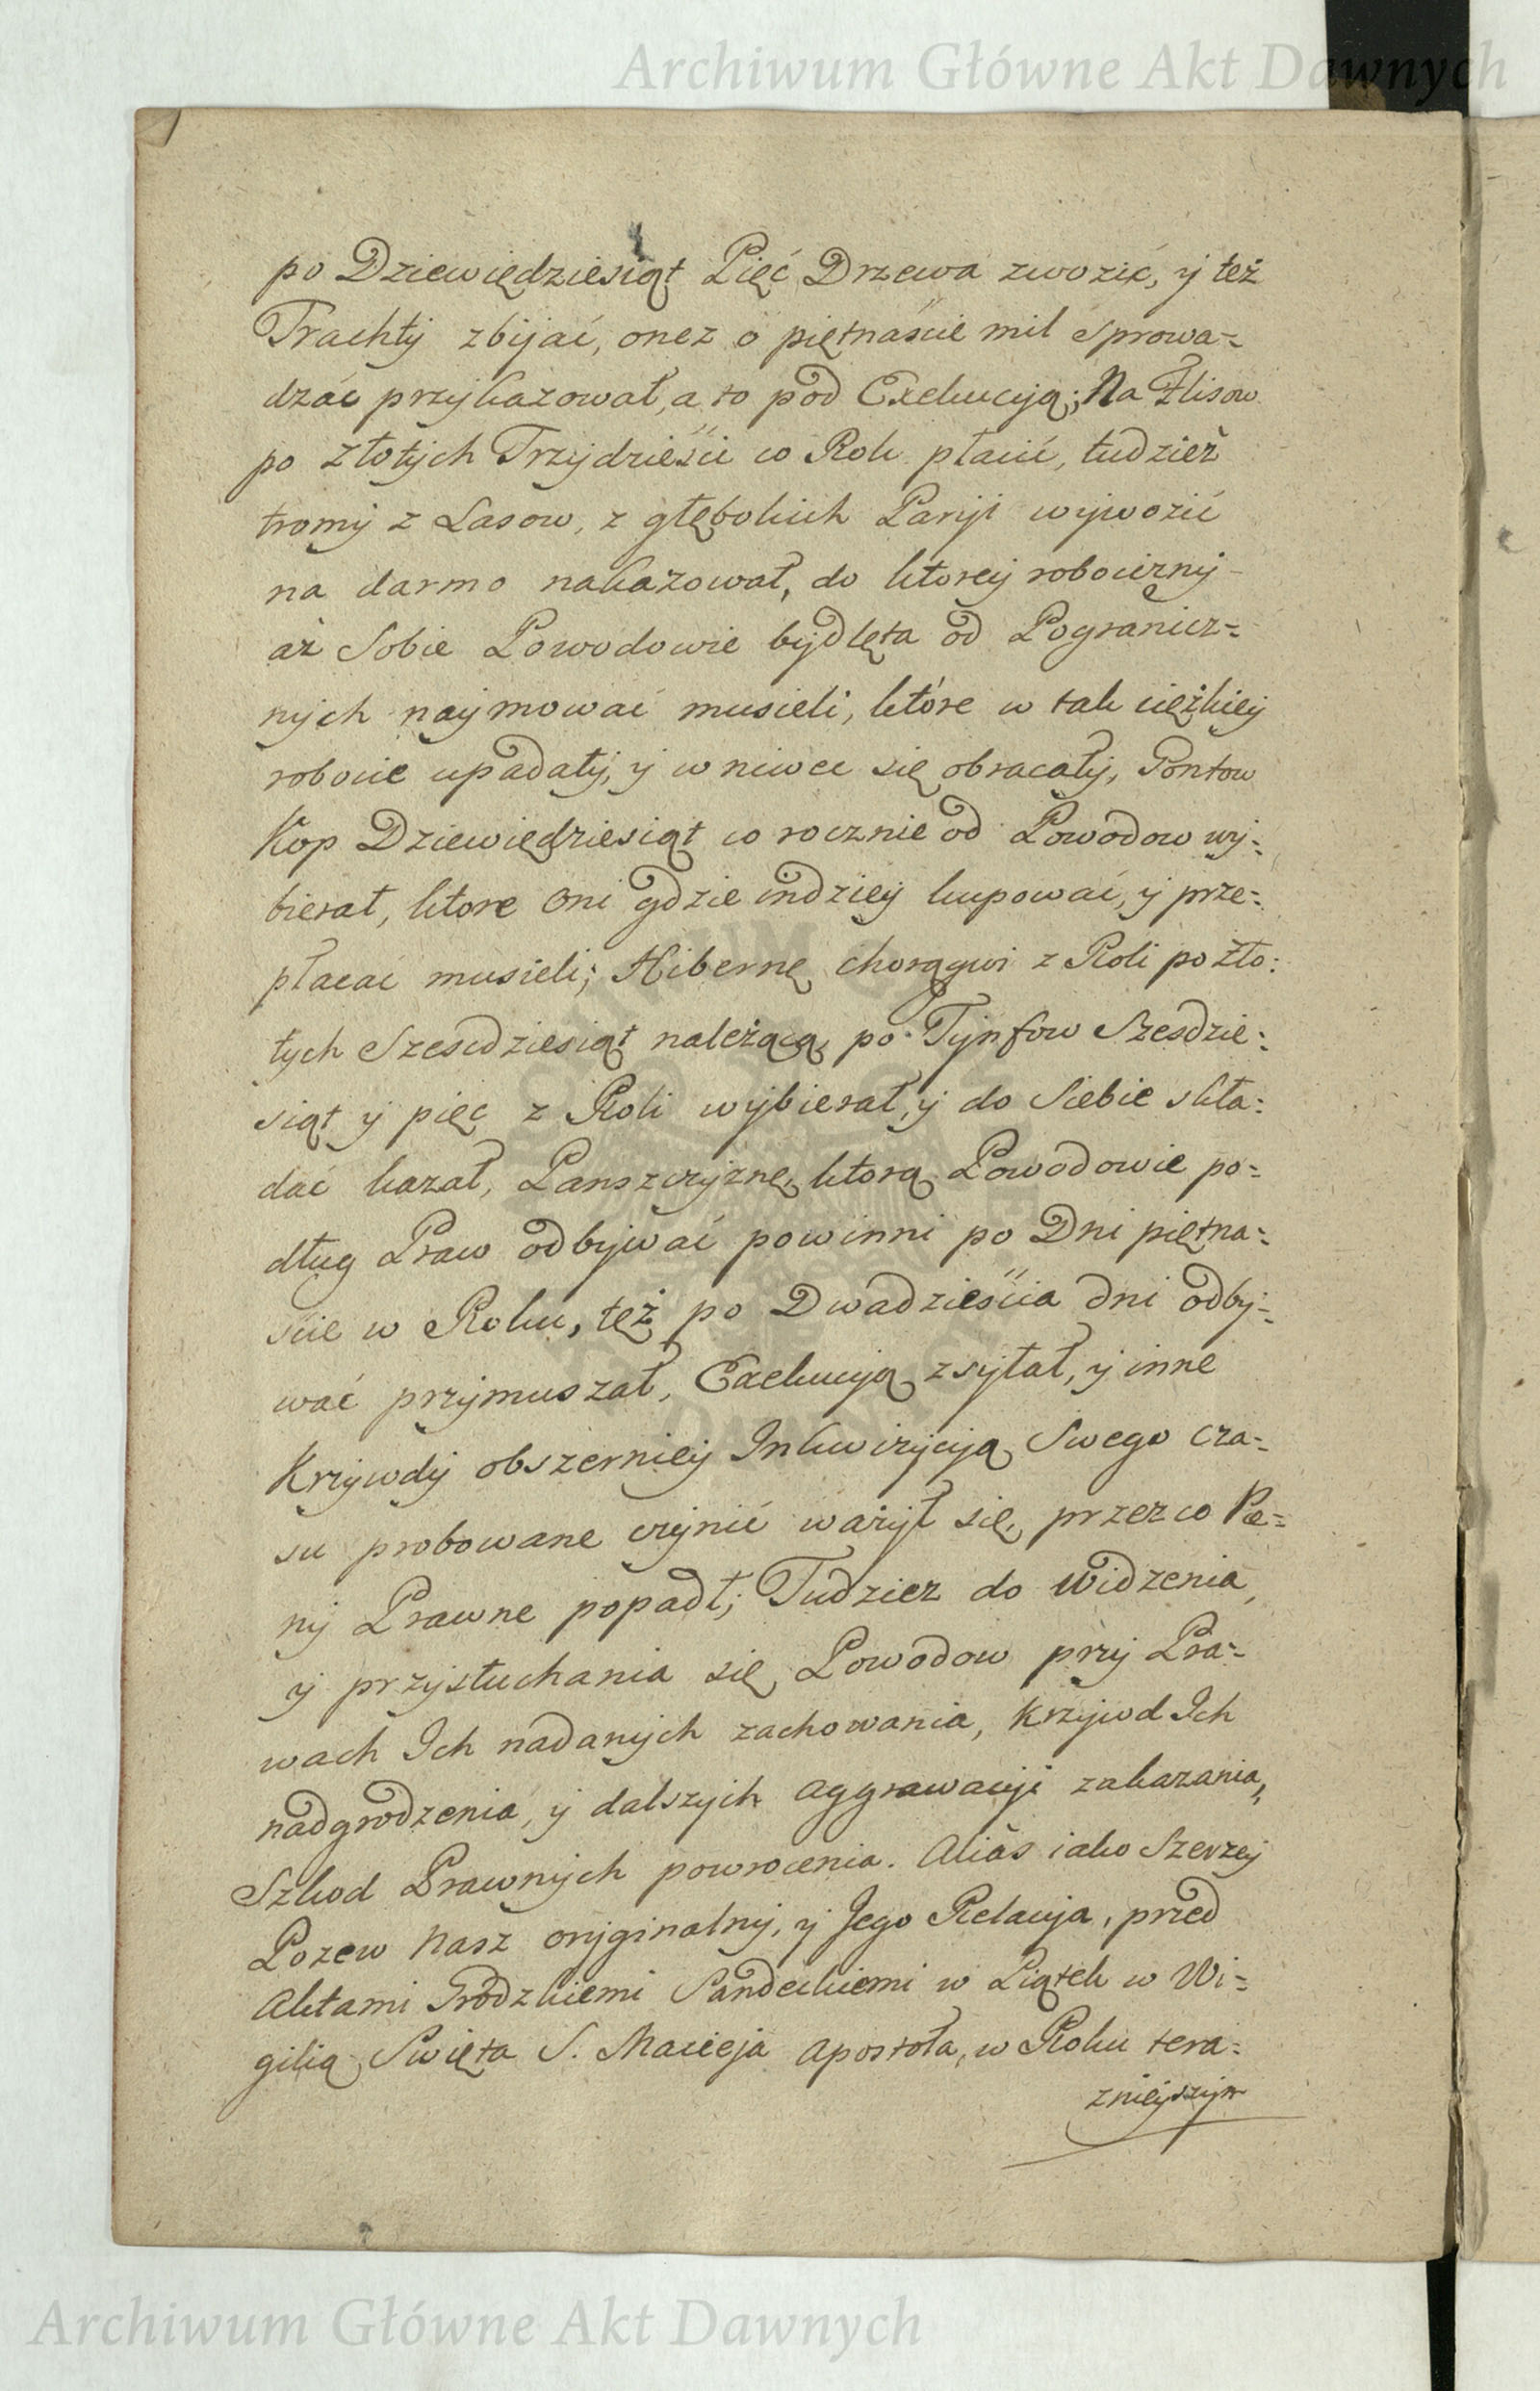 Archiwum Główne Akt Dawnych
po Dziewiędziesiąt Pięć Drzewa zwozić, y też
Trachty zbijać, onez o piętnaście mil sprowa-
dzać przykazował, a to pod Exekucyą; Na Flisow
po złotych Trzydzieści co Rok płacić, tudzież
tromy z Lasow, z głębokich Paryi wywozić
na darmo nakazował, do ktorey robocizny
aż Sobie Powodowie bydlęta od Pogranicz-
nych naymować musieli, które w tak ciężkiey
robocie upadały, y w niwec się obracały, Gontow
Kop Dziewiędziesiąt co rocznie od Powodow wy-
bierał, ktore oni gdzie indziey kupować, y prze-
płacać musieli; Hibernę chorągwi z Roli po Zło:
tych Szesćdziesiąt należącą, po Tynfow Szesdzie:
siąt y pięc z Roli wybierał, y do Siebie skła:
dać kazał, Panszczyznę, ktorą Powodowie po-
dług Praw odbywać powinni po Dni piętna-
scie w Roku, też po Dwadzieścia dni odby-
wać przymuszał, Exekucyą zsyłał, y inne
Krzywdy obszerniey Inkwizycyą Swego cza-
su probowane czynić ważył się, przez co Pæ-
ny Prawne popadł; Tudziez do Widzenia,
y przysłuchania się Powodow przy Pra-
wach Ich nadanych zachowania, krzywd Ich
nadgrodzenia, y dalszych aggrawacyi zakazania,
Szkod Prawnych powrocenia. Aliàs iako Szerzey
Pozew Nasz oryginalny, y Jego Relacyja, przed
Aktami Grodzkiemi Sandeckiemi w Piątek w Wi-
gilią Swięta S. Macieja Apostoła, w Roku tera-
znieyszym
Archiwum Główne Akt Dawnych